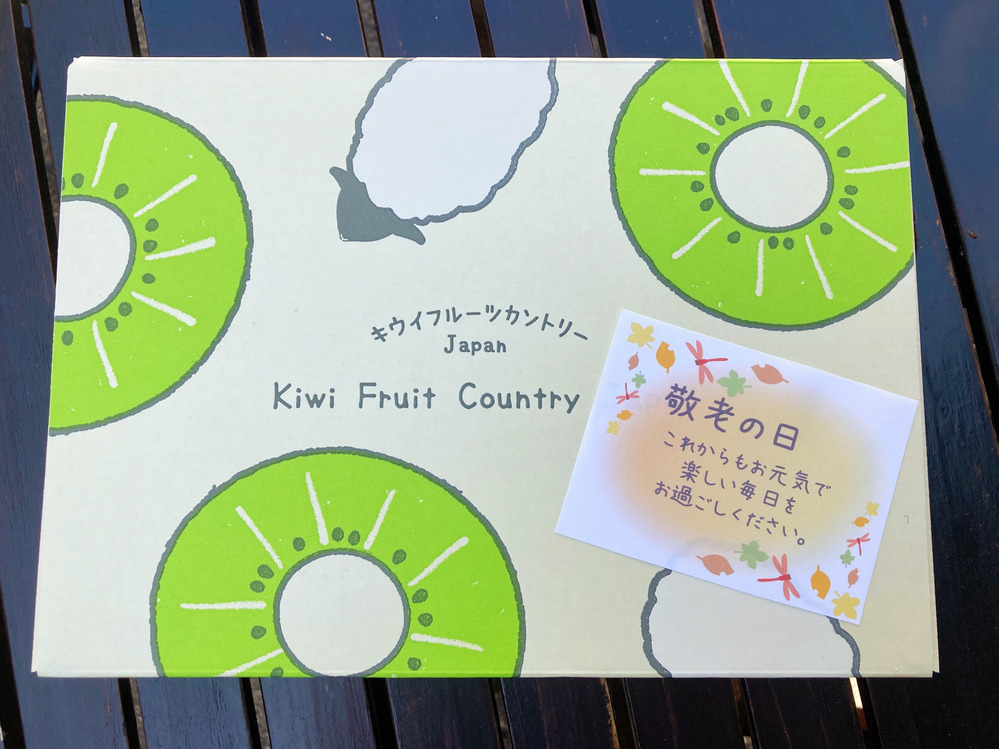 キウイフルーツカントリー
Japan
Kiwi Fruit Country
敬老の日
これからもお元気で
楽しい毎日を
お過ごしください。